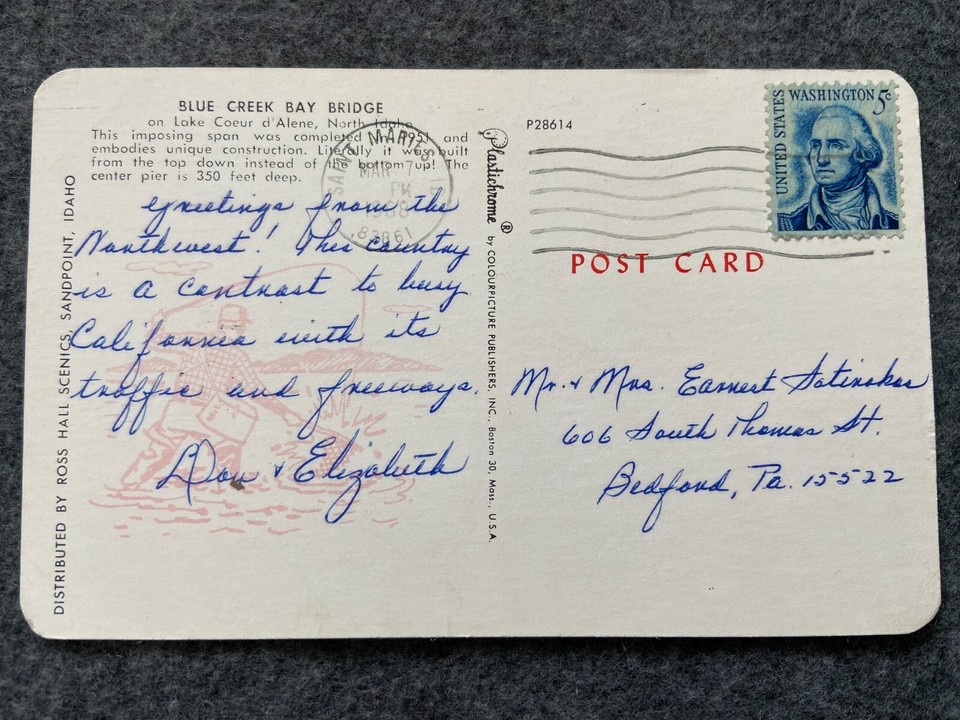 BLUE CREEK BAY BRIDGE
on Lake Coeur d'Alene, North Idaho
This imposing span was completed in 1951 and
embodies unique construction. Literally it was built
from the top down instead of the bottom up! The
center pier is 350 feet deep.
greetings from the
Northwest! This country
is a contrast to busy
California with its
traffic and freeways.
Don & Elizabeth
DISTRIBUTED BY ROSS HALL SCENICS, SANDPOINT, IDAHO
SAINT MARIES
MAR 7
PM
1968
83861
Plastichrome ® by COLOURPICTURE PUBLISHERS, INC., Boston 30, Mass., U.S.A.
P28614
UNITED STATES
WASHINGTON 5c
POST CARD
Mr. & Mrs. Earnest
606 South Thomas St.
Bedford, Pa. 15522